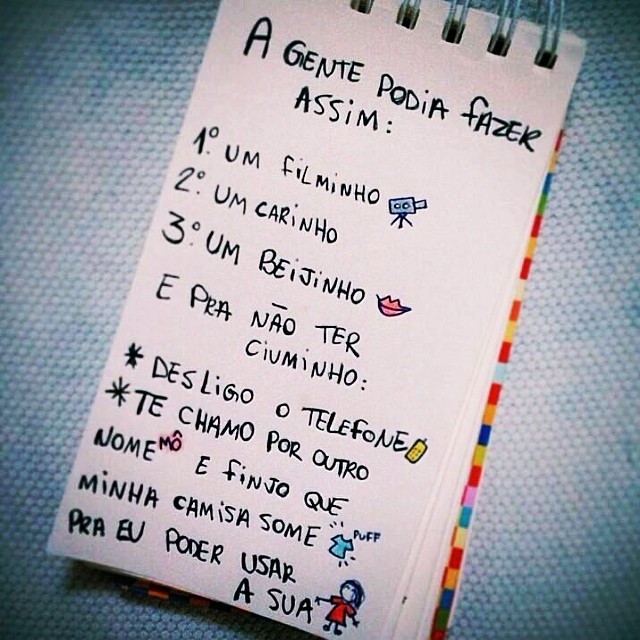 A GENTE PODIA FAZER
ASSIM:
1º UM FILMINHO
2º UM CARINHO
3º UM BEIJINHO
E PRA NÃO TER
CIUMINHO:
* DESLIGO O TELEFONE
* TE CHAMO POR OUTRO
NOME MÔ E FINJO QUE
MINHA CAMISA SOME PUFF
PRA EU PODER USAR
A SUA